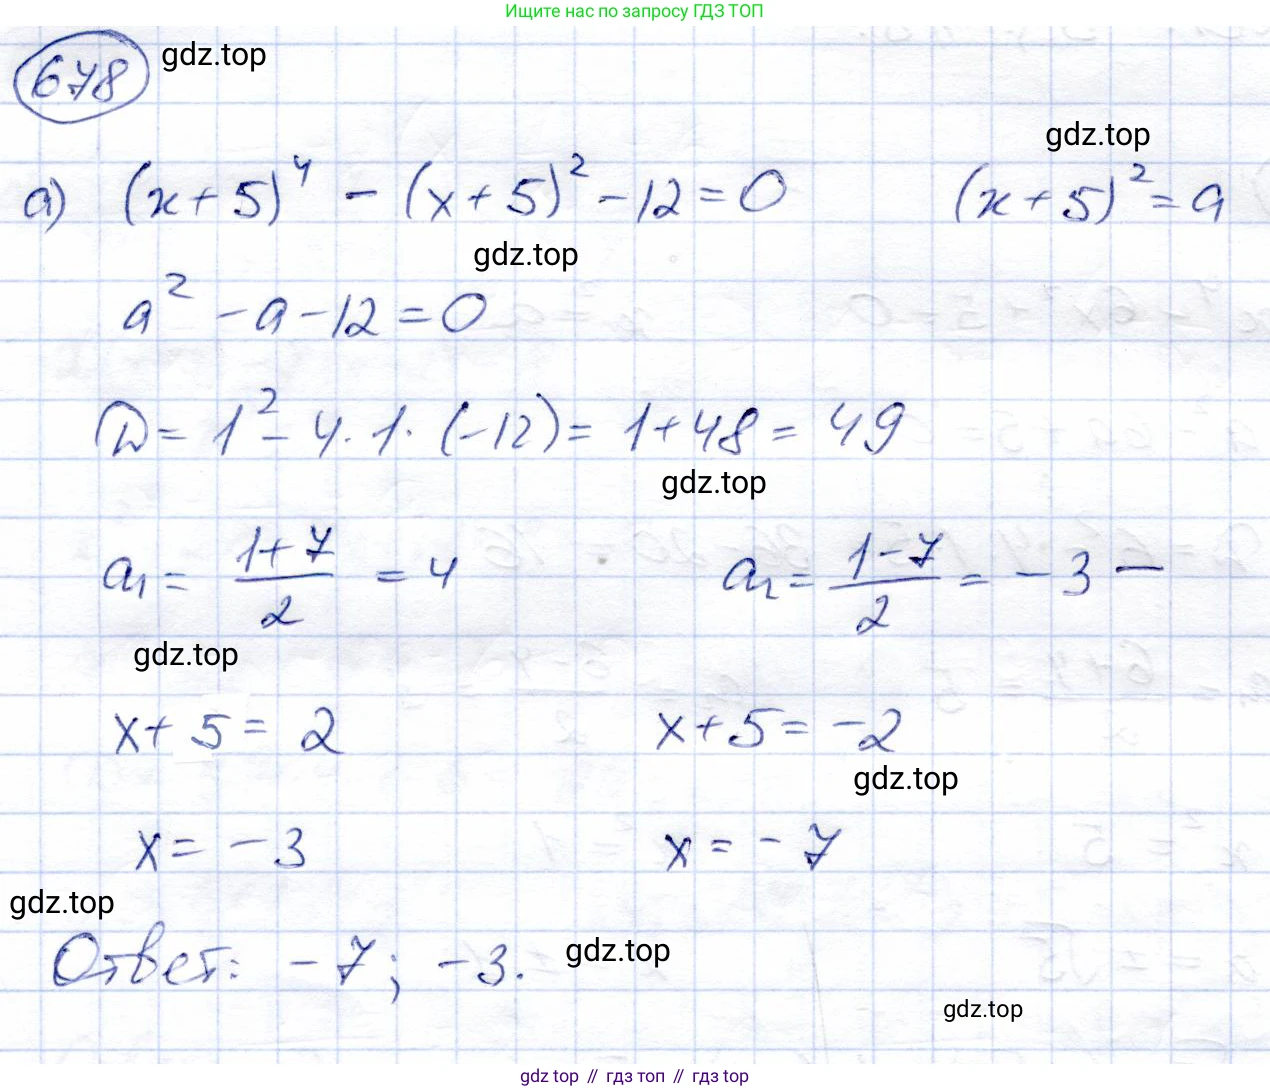 Ищите нас по запросу ГДЗ ТОП
678 gdz.top
gdz.top
а) (x+5)⁴ - (x+5)² - 12 = 0 (x+5)² = a
gdz.top
a² - a - 12 = 0
D = 1² - 4 · 1 · (-12) = 1 + 48 = 49
gdz.top
a₁ = (1+7)/2 = 4 a₂ = (1-7)/2 = -3 —
gdz.top
x + 5 = 2 x + 5 = -2
gdz.top
x = -3 x = -7
gdz.top
Ответ: -7; -3. gdz.top
gdz.top
gdz top // гдз топ // гдз top